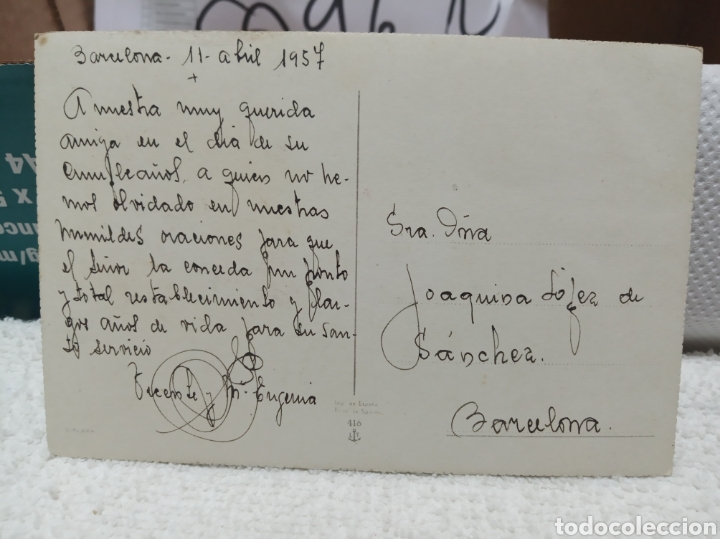 Barcelona - 11 - abril 1957
+
A nuestra muy querida
amiga en el día de su
cumpleaños, a quien no he-
mos olvidado en nuestras
humildes oraciones para que
el Señor la conceda un pronto
y total restablecimiento y lar-
gos años de vida para su San-
to servicio
Vicente y Mª Eugenia
Sra. Dña
Joaquina López de
Sánchez.
Barcelona.
416
todocoleccion
A4